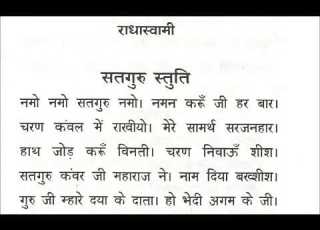 राधास्वामी
सतगुरु स्तुति
नमो नमो सतगुरु नमो। नमन करूँ जी हर बार।
चरण कंवल में राखीयो। मेरे सामर्थ सरजनहार।
हाथ जोड़ करूँ विनती। चरण निवाऊँ शीश।
सतगुरु कंवर जी महाराज ने। नाम दिया बख्शीश।
गुरु जी म्हारे दया के दाता। हो भेदी अगम के जी।